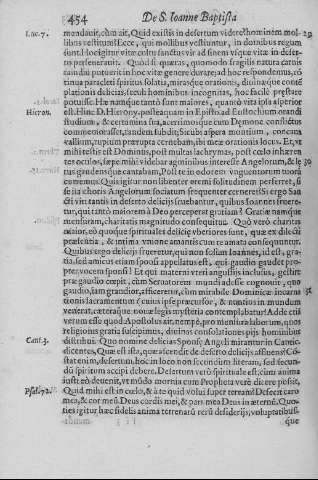 454 De S. Ioanne Baptista
Luc. 7. mendauit, cùm ait, Quid existis in desertum videre? hominem mol- 29
libus vestitum? Ecce, qui mollibus vestiuntur, in domibus regum
sunt: hoc igitur vitæ cultu sanctus vir ad finem vsque vitæ in deser-
to perseuerauit. Quòd si quæras, quomodo fragilis natura carnis
tandiu potuerit in hoc vitæ genere durare; ad hoc respondemus, có
tinua paracleti spiritus solatia, mirasque orationis, diuinæque conté
plationis delicias, secub hominibus incognitas, hoc facilè præstare
potuisse. Hæ namque tantò sunt maiores, quantò vita ipsa asperior
Hieron. est. Hinc D. Hierony. postea quam in Epist. ad Eustochium orandi
studium, & certamina sua, acerrimosque cum Dæmone conflictus
commemorasset, tandem subdit; Sicubi aspera montium, concaua
vallium, rupium prærupta cernebam, ibi meæ orationis locus. Et, vt
mihi testis est Dominus, post multas lachrymas, post cœlo inhæren
tes oculos, sæpe mihi videbar agminibus interesse Angelorum, & læ 30
tus gaudensque cantabam, Post te in odorem vnguentorum tuorú
curremus. Quis igitur non libenter eremi solitudinem perferret, si
se ita choris Angelorum sociatum frequenter cerneret? Si ergo San
cti viri tantis in deserto delicijs fruebantur, quibus Ioannem frueré-
tur, qui tantò maiorem à Deo perceperat gratiam? Gratiæ namque
mensuram, charitatis magnitudo consequitur. Quò verò charitas
maior, eò quoque spirituales deliciæ vberiores sunt, quæ ex dilecti
præsentia, & intima vnione amantis cum te amato consequuntur.
Quibus ergo delicijs frueretur, qui non solùm Ioannes, id est, gra-
tia, sed amicus etiam sponsi appellatus est, qui gaudio gaudet pro-
pter vocem sponsi? Et qui materni vteri angustijs inclusus, gestire
præ gaudio cœpit, cùm Seruatorem mundi adesse cognouit, quo
gaudio, iam grandior, afficeretur, cùm mirabile Dominicæ incarna- 31
tionis sacramentum (cuius ipse præcursor, & nuntius in mundum
venerat, cæteraque nouæ legis mysteria contemplabatur? Adde etiá
verum esse quod Apostolus ait, nempè, pro mensura laborum, quos
religionis gratia suscipimus, diuinas consolationes pijs hominibus
Cant. 3. distribui. Quo nomine delicias Sponsæ Angeli mirantur in Cantic.
dicentes, Quæ est ista, quæ ascendit de deserto delicijs affluens? Có-
stat enim, desertum, hoc in loco non secundùm literam, sed secun-
dū spiritum accipi debere. Desertum verò spirituale est; cùm anima
iusta eò deuenit, vt modò mortua cum Propheta verè dicere possit,
Psal. 72. Quid mihi est in cœlo, & à te quid volui super terram? Defecit caro
mea, & cor meū: Deus cordis mei, & pars mea Deus in æternū. Quo-
ties igitur hæc fidelis anima terrenarū rerū desiderijs, voluptatibus-
que